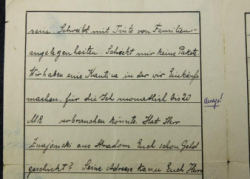 neue. Schreibt mit Tinte von Familien-
angelegenheiten. Schickt mir keine Pakete.
Wir haben eine Kantine in der wir Einkäufe
machen, für die Ich monatlich bis 20
M2 verbrauchen könnte. Hat Ihr
aus Stradom Euch schon Geld
geschickt? Seine Adresse kann Euch Herr